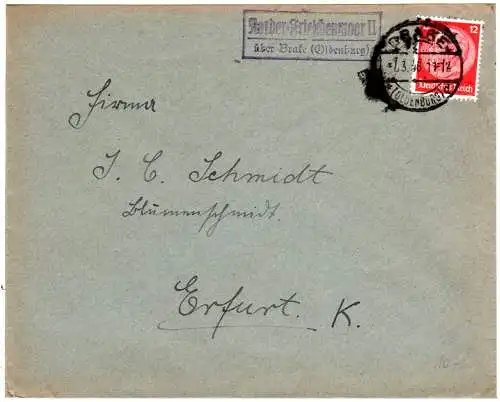 Außer-Frieschenmoor II
über Brake (Oldenburg)
BRAKE
(OLDENBURG)
12
Deutsches Reich
Firma
J. C. Schmidt
Blumenschmidt.
Erfurt. K.